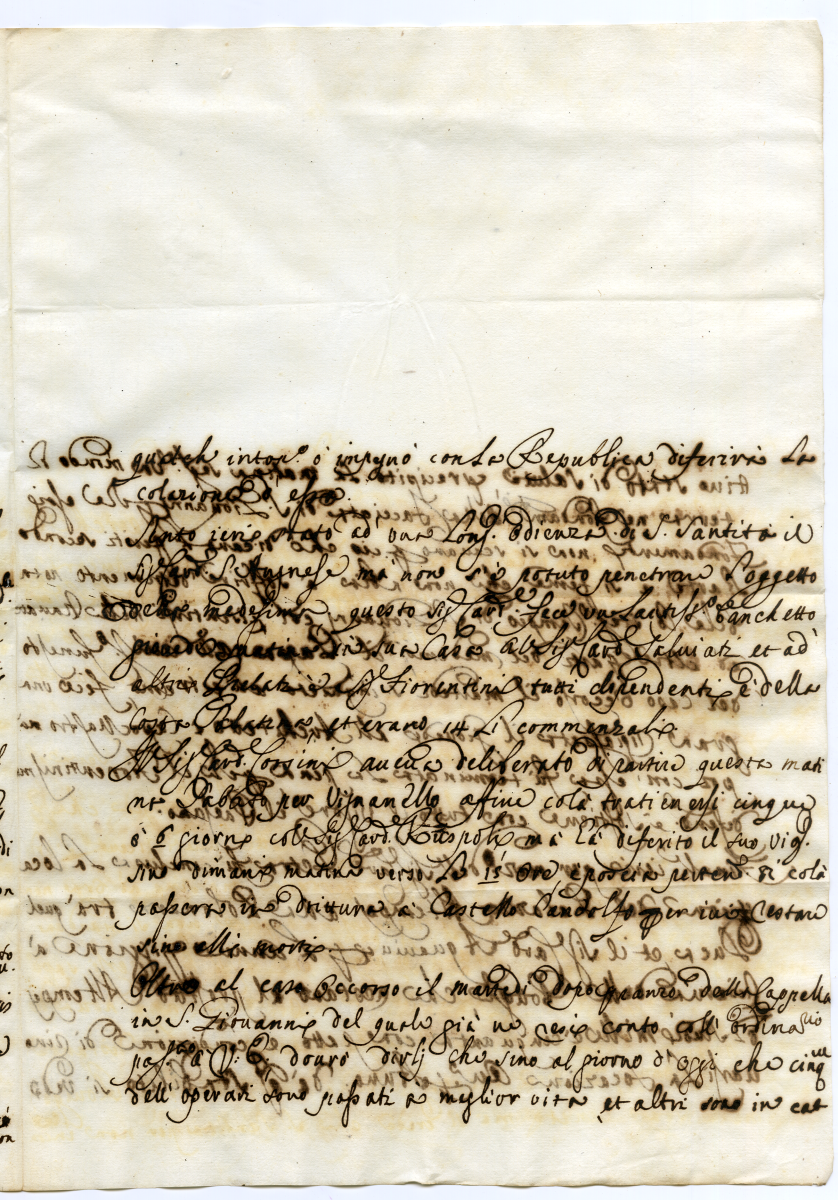 qualch intop.º ó impegno con la Republica diferirà la
colazione d'essa.
Sento ieri stato ad una long. Odienza di S. Santità il
Sig. Card. S. Agnese ma non s'è potuto penetrare l'oggetto
della medesima, questo Sig. Card.le fece un lautiss.º banchetto
giovedì matina in sua Casa al Sig. Card. Salviati et ad
altri Prelati e Sig.ri Fiorentini tutti dipendenti é della
Corte Palatina, et erano 14 li commenzali.
Il Sig. Card. Corsini aueua deliberato di partire questa mati
na Sabato per Vignanello affine colà tratienersi cinque
ò 6 giorni col Sig. Card. Ruspoli ma hà diferito il suo viag.
sino dimani matina verso le 15 ore e poscia parten. di colà
passerà in drittura a Castello Gandolfo per iui restare
sino alli morti.
Oltre al caso occorso il martedì dopo pranzo della Cappella
in S. Giovanni del quale già ne resi conto coll' ordinario
pass.to à V. E. dourò dirlj che sino al giorno d'oggi che cinque
dell' operarj sono passati a miglior vita, et altri sono in cat